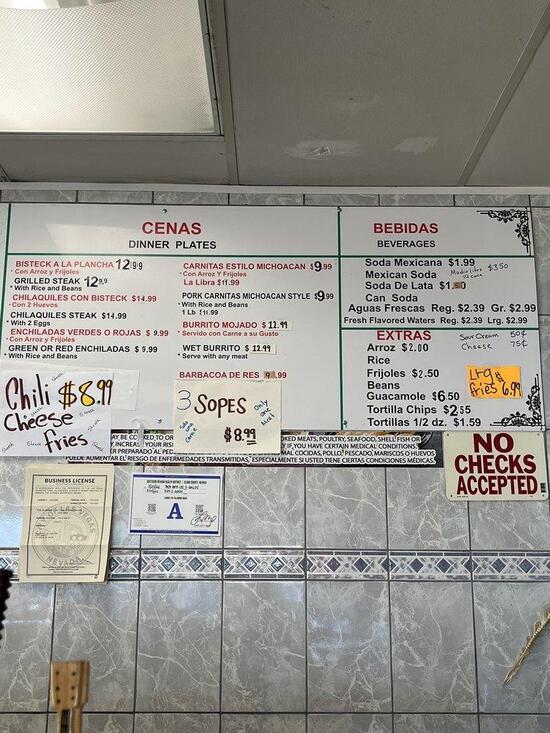 CENAS
DINNER PLATES
BISTECK A LA PLANCHA 12.99
• Con Arroz y Frijoles
GRILLED STEAK 12.99
• With Rice and Beans
CHILAQUILES CON BISTECK $14.99
• Con 2 Huevos
CHILAQUILES STEAK $14.99
• With 2 Eggs
ENCHILADAS VERDES O ROJAS $ 9.99
• Con Arroz y Frijoles
GREEN OR RED ENCHILADAS $ 9.99
• With Rice and Beans
CARNITAS ESTILO MICHOACAN $9.99
• Con Arroz Y Frijoles
La Libra $11.99
PORK CARNITAS MICHOACAN STYLE $9.99
• With Rice and Beans
1 Lb $11.99
BURRITO MOJADO $ 12.99
• Servido con Carne a su Gusto
WET BURRITO $ 12.99
• Serve with any meat
BARBACOA DE RES
BEBIDAS
BEVERAGES
Soda Mexicana $1.99
Mexican Soda Medio litro $3.50
12 onz
Soda De Lata
Can Soda
Aguas Frescas Reg. $2.39 Gr. $2.99
Fresh Flavored Waters Reg. $2.39 Lrg. $2.99
EXTRAS
Sour Cream 50¢
Cheese 75¢
Arroz $2.00
Rice
Frijoles $2.50
Beans
Guacamole $6.50
Tortilla Chips $2.55
Tortillas 1/2 dz. $1.59
Lrg $
fries 6.99
Chili $8.99
Cheese
fries
Steak
3 SOPES
Only
one
Meat
Sour
Cream
$8.99
NO
CHECKS
ACCEPTED
AY BE COOKED TO OR
OKED MEATS, POULTRY, SEAFOOD, SHELL FISH OR
INCREASE YOUR RIS
Y IF YOU HAVE CERTAIN MEDICAL CONDITIONS.
R PREPARADO AL PED
MAL COCIDAS, POLLO, PESCADO, MARISCOS O HUEVOS
PUEDE AUMENTAR EL RIESGO DE ENFERMEDADES TRANSMITIDAS, ESPECIALMENTE SI USTED TIENE CIERTAS CONDICIONES MÉDICAS.
BUSINESS LICENSE
LAS VEGAS
NEVADA
SOUTHERN NEVADA HEALTH DISTRICT
A